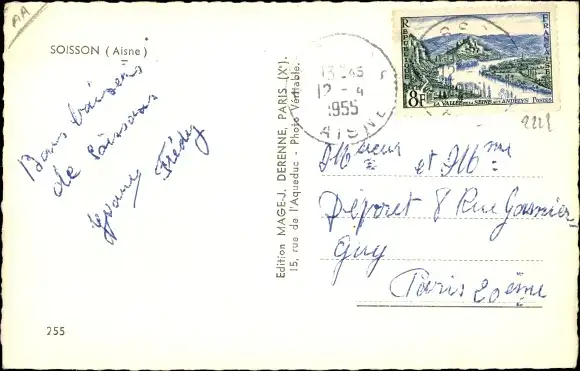 AA
SOISSON (Aisne)
Bons baisers
de Soissons
Frédy
255
Edition MAGE-J. DERENNE, PARIS (Xᵉ).
15, rue de l'Aqueduc - Photo Véritable.
13H45
12-4
1955
AISNE
REPUBLIQUE
FRANÇAISE
8F
LA VALLÉE DE LA SEINE AUX ANDELYS POSTES
et Mme
8 Rue Gasnier-
Guy
Paris 20ème